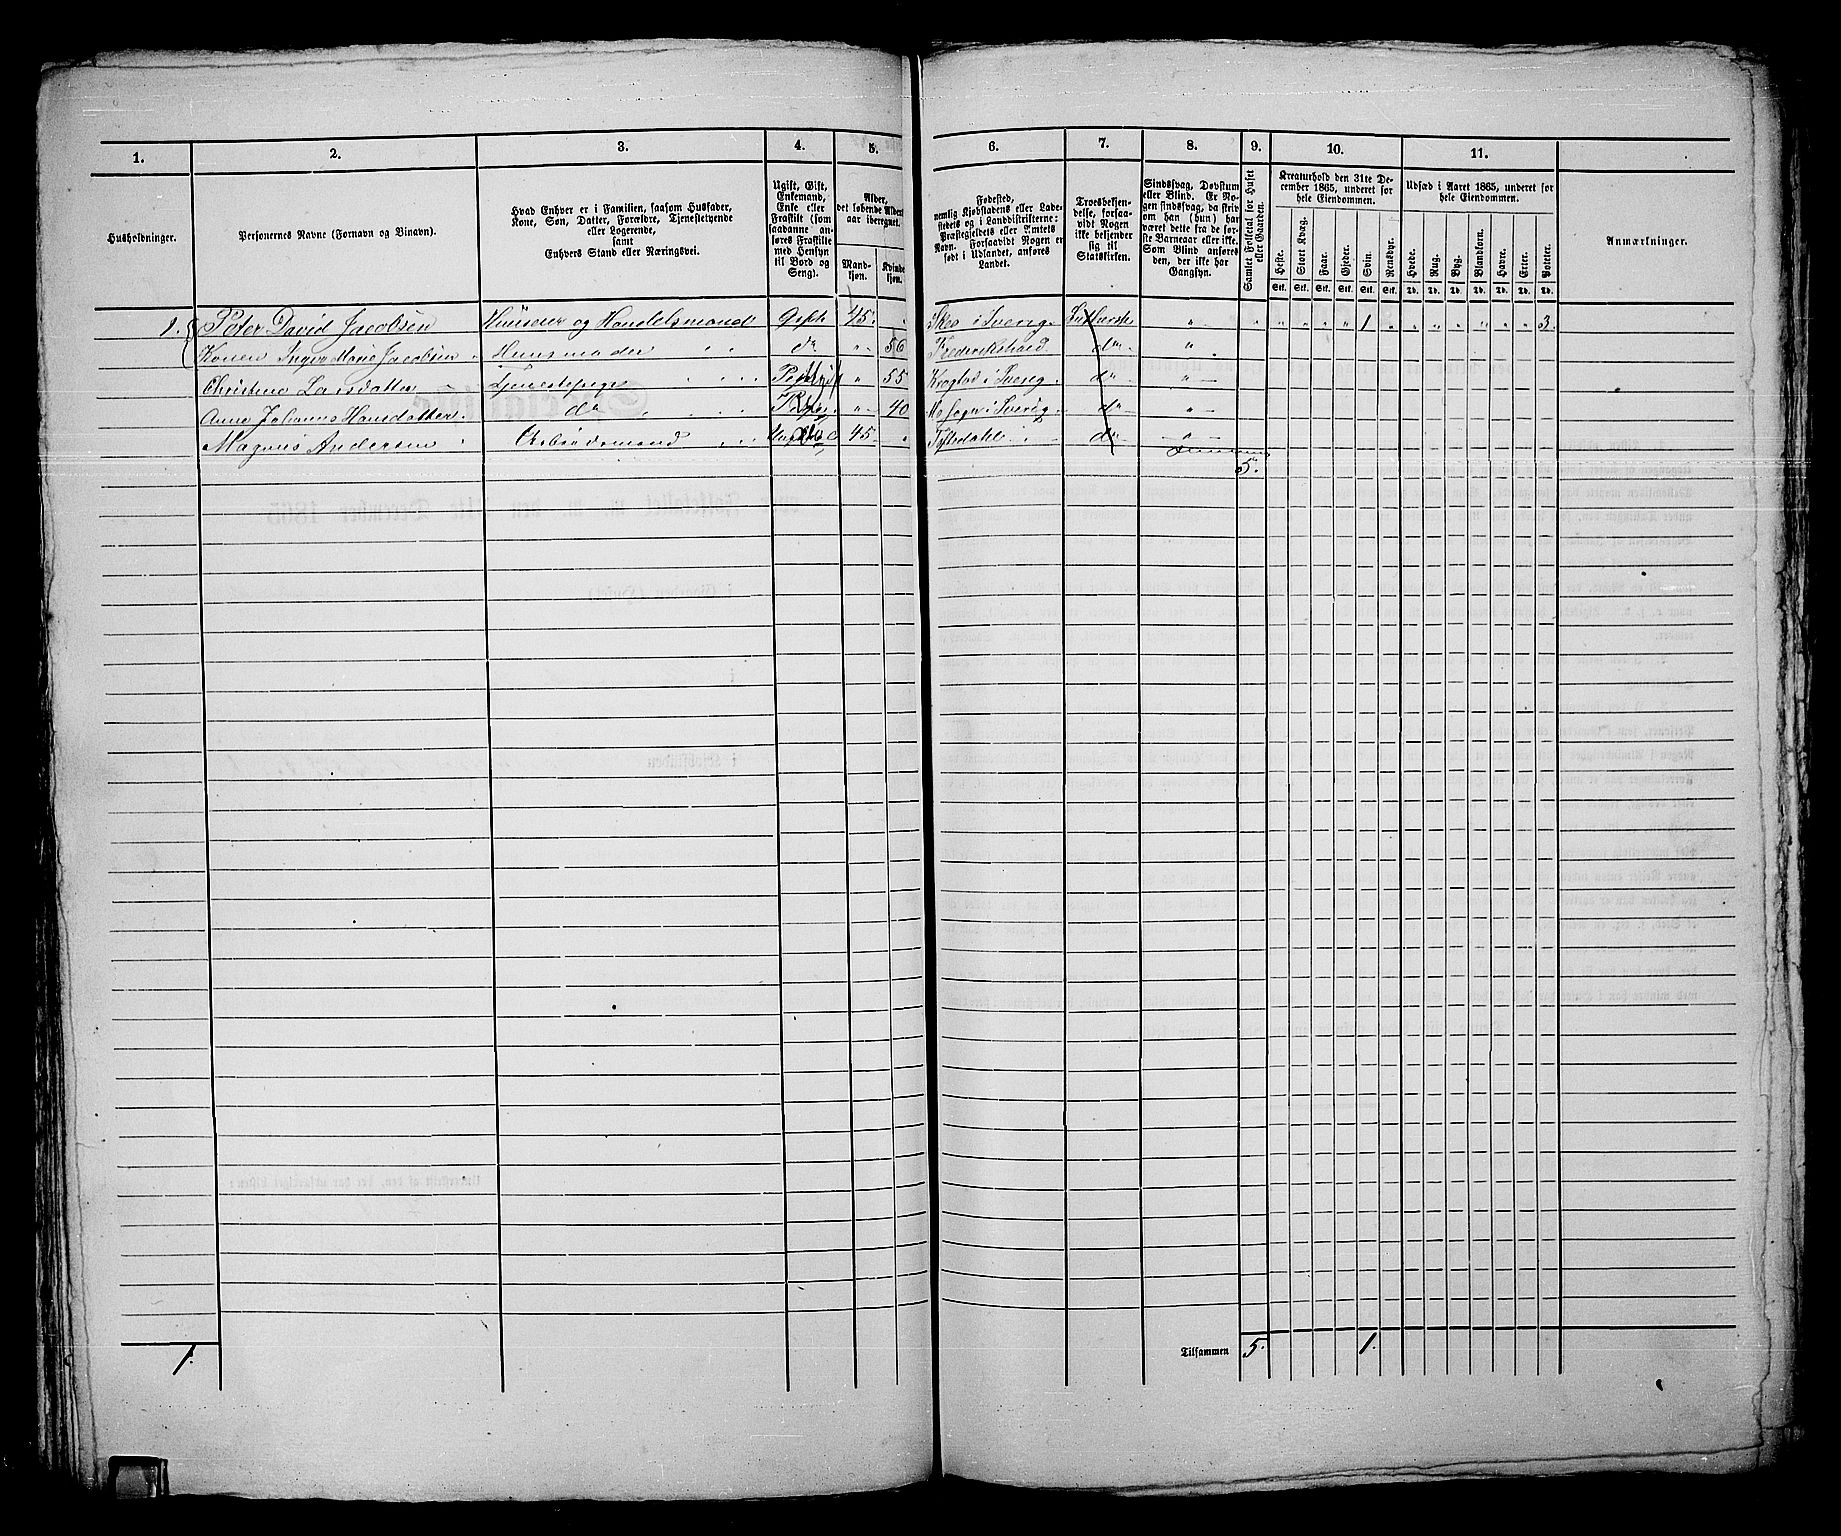 1. 2. 3. 4. 5. 6. 7. 8. 9. 10. 11.
Husholdninger.
Personernes Navne (Fornavn og Binavn).
Hvad Enhver er i Familien, saasom Husfader,
Kone, Søn, Datter, Forældre, Tjenestetyende
eller Logerende,
samt
Enhvers Stand eller Næringsvei.
Ugift, Gift,
Enkemand,
Enke eller
Fraskilt (som
saadanne an-
føres Fraskilte
med Hensyn
til Bord og
Seng).
Alder,
det løbende Alders-
aar iberegnet.
Mand-
kjøn.
Kvinde-
kjøn.
Fødested,
nemlig Kjøbstadens eller Lade-
stedets og i Landdistrikterne:
Præstegjeldets eller Amtets
Navn. Forsaavidt Nogen er
født i Udlandet, anføres
Landet.
Troesbekjen-
delse, forsaa-
vidt Nogen
ikke bekjender
sig til
Statskirken.
Sindssvag, Døvstum
eller Blind. Er No-
gen sindssvag, da skriv
om han (hun) har
været dette fra de før-
ste Barneaar eller ikke.
Som Blind anføres
den, der ikke har
Gangsyn.
Samlet Folketal for Huset
eller Gaarden.
Kreaturhold den 31te De-
cember 1865, underet for
hele Eiendommen.
Heste. Stort Kvæg. Faar. Gjeder. Svin. Rensdyr.
Stk. Stk. Stk. Stk. Stk. Stk.
Udsæd i Aaret 1865, underet for
hele Eiendommen.
Hvede. Rug. Byg. Blandkorn. Havre. Erter. Poteter.
Td. Td. Td. Td. Td. Td. Td.
Anmærkninger.
1. Peter David Jacobsen Huuseier og Handelsmand Gift 45. " Skee i Sverig Lutherske " " " " " " 1 " " " " " " " 3.
Konen Ingva Marie Jacobsen Huusmoder do " 56 Frederikshald do "
Christine Larsdatter Tjenestepige " 55 Krogstad i Sverig do "
Anne Johanne Hansdatter do " 40 Mo Sogn i Sverig do "
Magnus Andersen Arbeidsmand 45 " do "
5.
1. Tilsammen 5. 1.